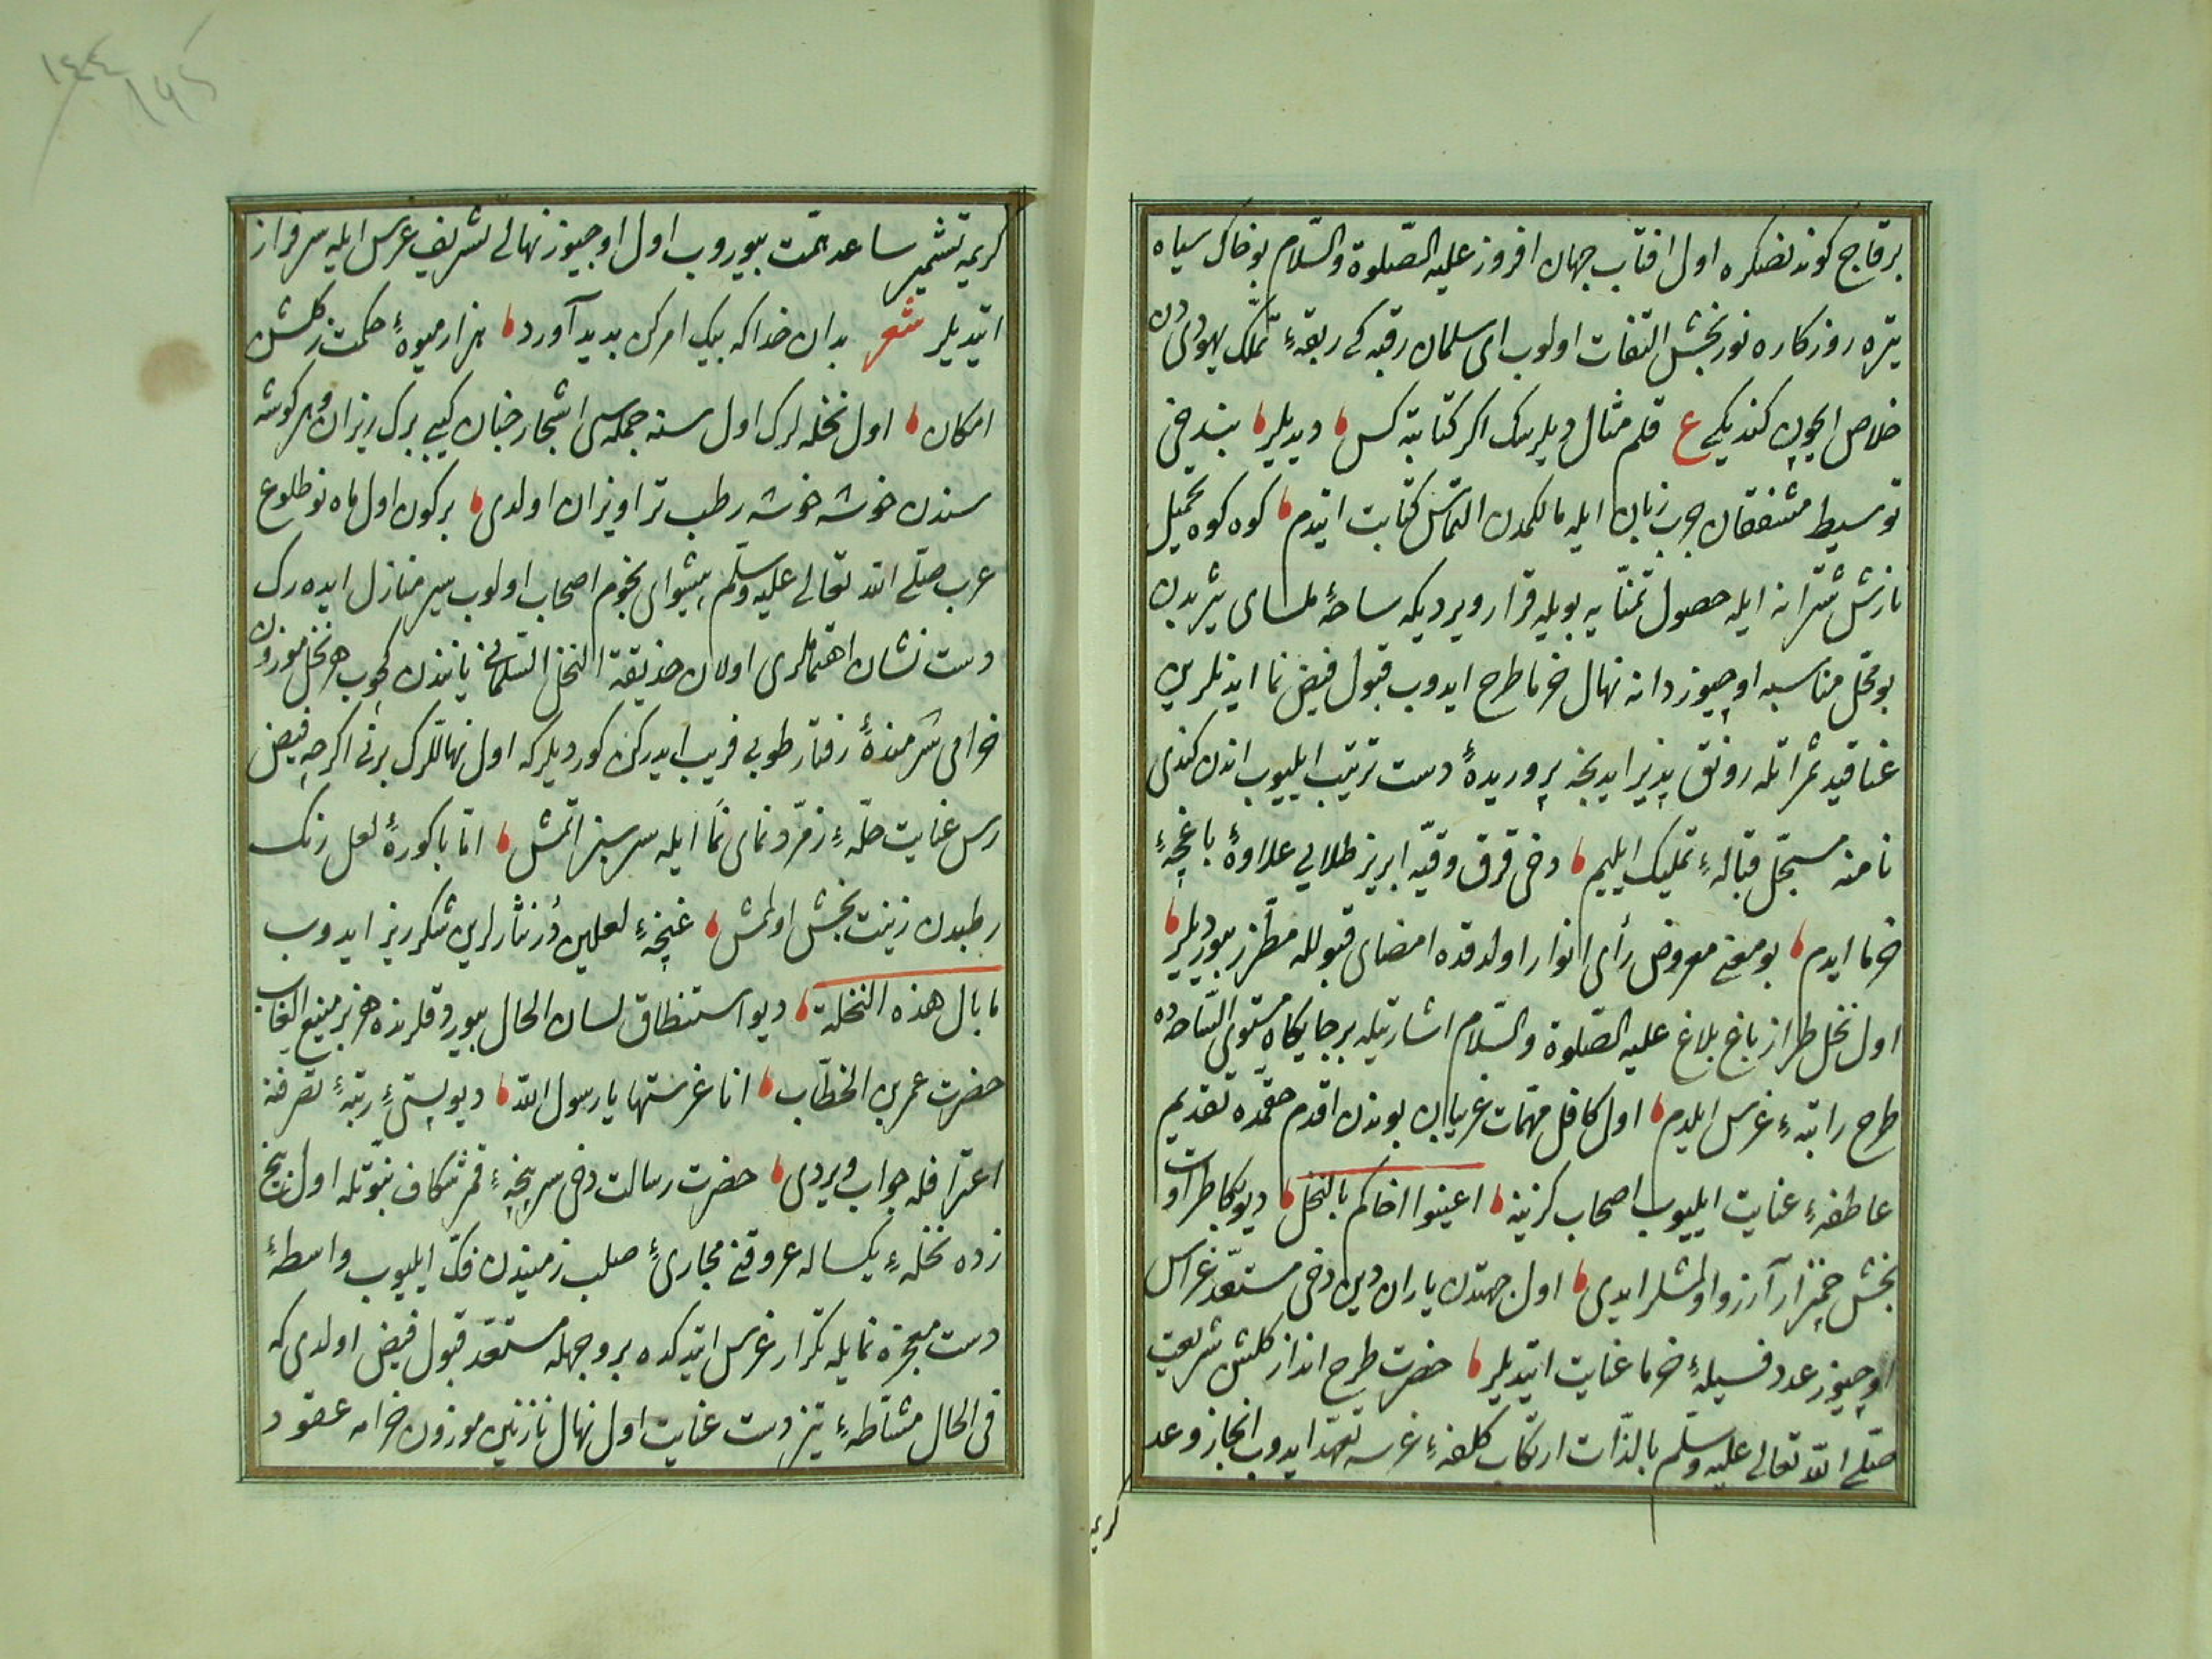 برقاج كوندنصكره اول افتاب جهان افروز عليه الصّلوة والسّلام بو خاك سياه
تيره روزكاره نور بخش التفات اولوب اى سلمان رقبه كى ربقهٔ تملّك يهودى دن
خلاص ايچون كنديكى ع قلم مثال ويلر سك اكر كتابته كس ديديلر بندخى
توسيط مشفقان چرب زبان ايله مالكمدن التماس كتابت ايتدم كوه كوه تحميل
نازش شترانه ايله حصول تمنّايه بويله قرار ويرديكه ساحهٔ ملساى يثربدن
بو محل مناسبه اوچيوز دانه نهال خرما طرح ايدوب قبول فيض نما ايدنلرين
عناقيد ثمراتله رونق پذير ايدنجه پروريدهٔ دست ترتيب ايليوب اندن كندى
نامنه مسجّل قبالهٔ تمليك ايليم دخى قرق وقيّه ابريز طلايى علاوهٔ باغچهٔ
خرما ايدم بو معنى معروض رأى انوار اولدقده امضاى قبولله مطرّز بيورديلر
اول نخل طراز باغ بلاغ عليه الصّلوة والسّلام اشارتيله بر جايكاه مستوى السّاحه ده
طرح راتبهٔ غرس ايلدم اول كافل مهمّات غريبان بوندن اقدم حقمده تقديم
عاطفهٔ عنايت ايليوب اصحاب كزينه اعينوا اخاكم بالنخل ديو يكا طراوت
بخش چمنزار آرزو اولمشلر ايدى اول جهتدن ياران دين دخى مستعدّ غراس
اوچيوز عدد فسيلهٔ خرما عنايت ايتديلر حضرت طرح انداز كلشن شريعت
صلّى الله تعالى عليه وسلّم بالذّات ارتكاب كلفهٔ غرسه تعهّد ايدوب انجاز وعد
كريمه
١٤٤
كريمه تشمير ساعد همّت بيوروب اول اوچيوز نهالى تشريف غرس ايله سرفراز
ايتديلر شعر بدان خدا كه بيك امر كن بديد آورد هزار ميوهٔ حكمت ز كلشن
امكان اول نخله لرك اول سنه جمله سى اشجار جنان كيبى برك ريزان و هر كوشه
سندن خوشه خوشه رطب تر اويزان اولدى بر كون اول ماه نو طلوع
عرب صلّى الله تعالى عليه وسلّم پيشواى نجوم اصحاب اولوب سير منازل ايده رك
دست نشان اهتماملرى اولان حديقة النخل السّلمانى ياننده ن كچوب هر نخل موزون
خرامى شرمندهٔ رفتار طوبى فريب ايدركن كورديلر كه اول نهاللرك برنى اكرچه فيض
رس عنايت حلّهٔ زمرّد نماى نما ايله سرسبز اتمش امّا باكورهٔ لعل رنك
رطبدن زينت بخش اولمامش غنچهٔ لعلين دُرنثارلرين شكرريز ايدوب
ما بال هذه النخلة ديو استنطاق لسان الحال بيوردقلرنده هزبر منيع الغاب
حضرت عمر بن الخطّاب انا غرستها يا رسول الله ديو پستئ رتبهٔ تصرّفنه
اعترافله جواب ويردى حضرت رسالت دخى سرپنجهٔ قمرشكاف نبوّتله اول بيخ
زده نخلهٔ يكساله عروقنى مجارئ صلب زميندن فكّ ايليوب واسطهٔ
دست معجزه نمايله تكرار غرس ايتدكده بر وجهله مستعدّ قبول فيض اولدى كه
فى الحال مشّاطهٔ تيز دست عنايت اول نهال نازنين موزون خرامه عقود